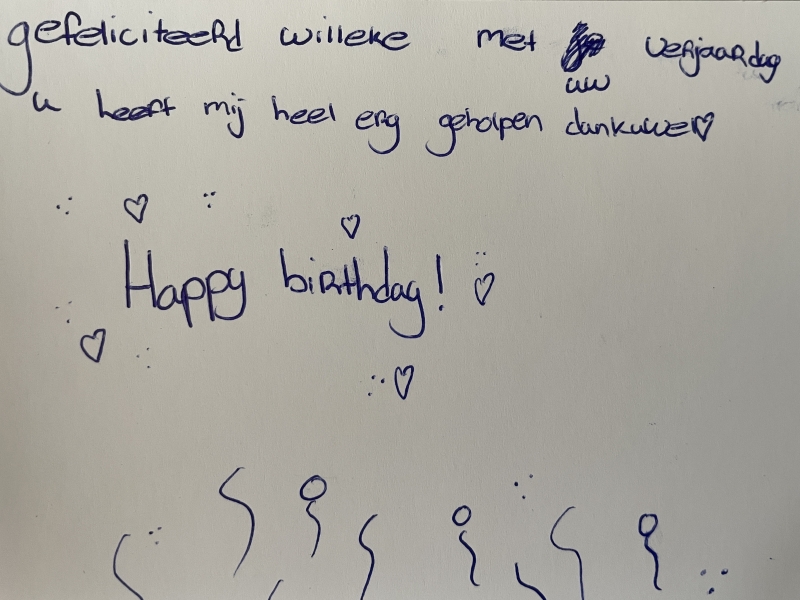 gefeliciteerd willeke met uw verjaardag
u heeft mij heel erg geholpen dankuwel
Happy birthday!